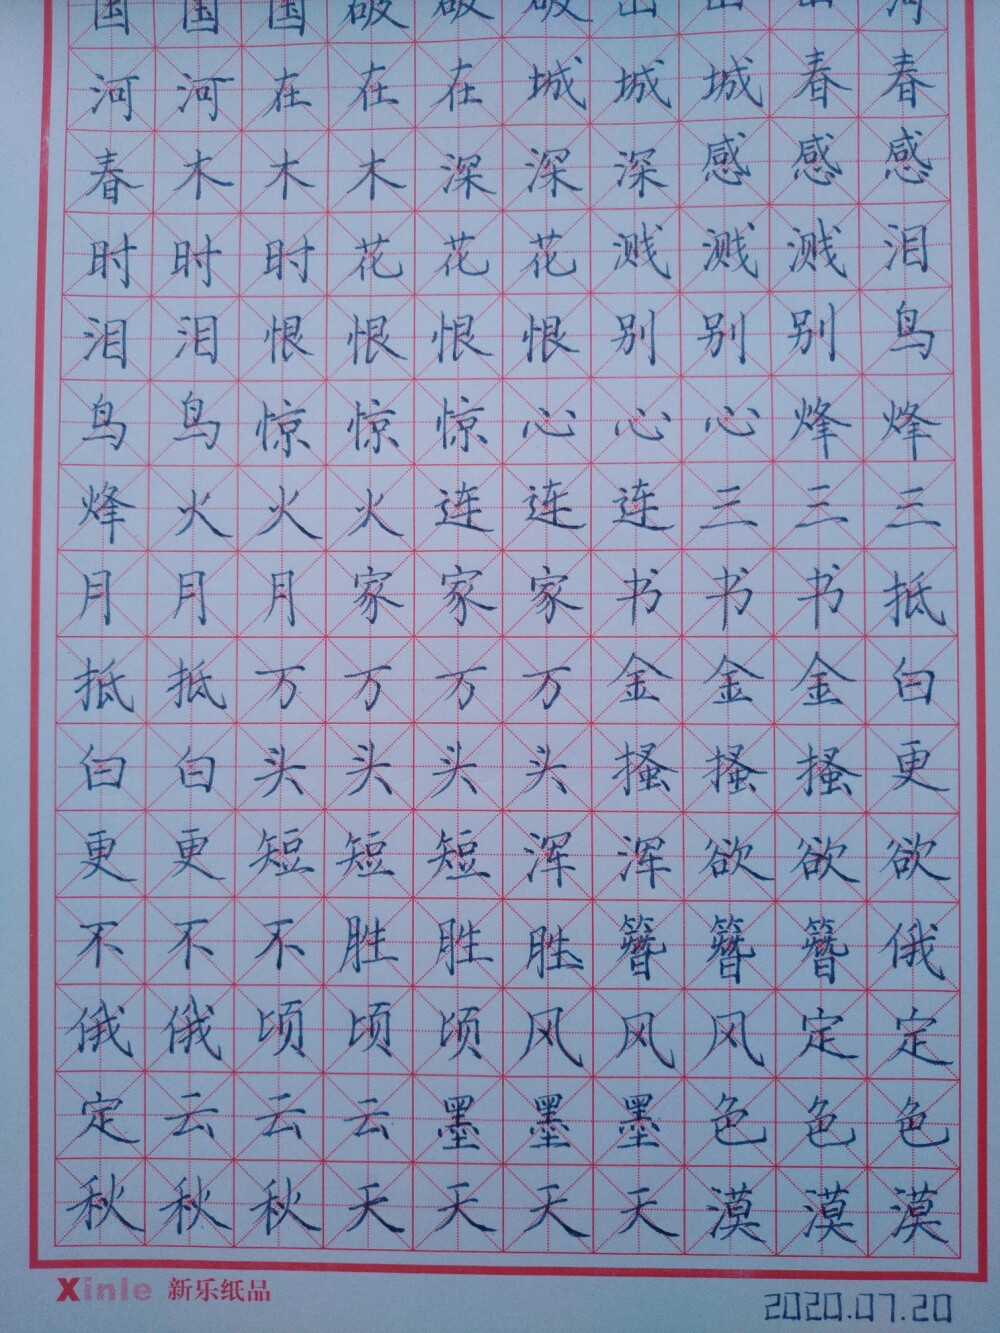 国 国 国 破 破 破 山 山 山 河
河 河 在 在 在 城 城 城 春 春
春 木 木 木 深 深 深 感 感 感
时 时 时 花 花 花 溅 溅 溅 泪
泪 泪 恨 恨 恨 恨 别 别 别 鸟
鸟 鸟 惊 惊 惊 心 心 心 烽 烽
烽 火 火 火 连 连 连 三 三 三
月 月 月 家 家 家 书 书 书 抵
抵 抵 万 万 万 万 金 金 金 白
白 白 头 头 头 头 搔 搔 搔 更
更 更 短 短 短 浑 浑 欲 欲 欲
不 不 不 胜 胜 胜 簪 簪 簪 俄
俄 俄 顷 顷 顷 风 风 风 定 定
定 云 云 云 墨 墨 墨 色 色 色
秋 秋 秋 天 天 天 天 漠 漠 漠
Xinle 新乐纸品
2020.07.20